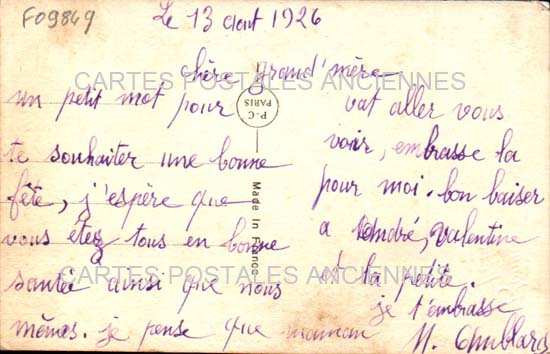 F09849
Le 13 Aout 1926
chère grand'mère
un petit mot pour
te souhaiter une bonne
fête, j'espère que
vous étez tous en bonne
santée ainsi que nous
mêmes. je pense que maman
vat aller vous
voir, embrasse la
pour moi. bon baiser
a André, Valentine
et la petite.
je t'embrasse
M.
P-C
PARIS
Made In France
CARTES POSTALES ANCIENNES
CARTES POSTALES ANCIENNES